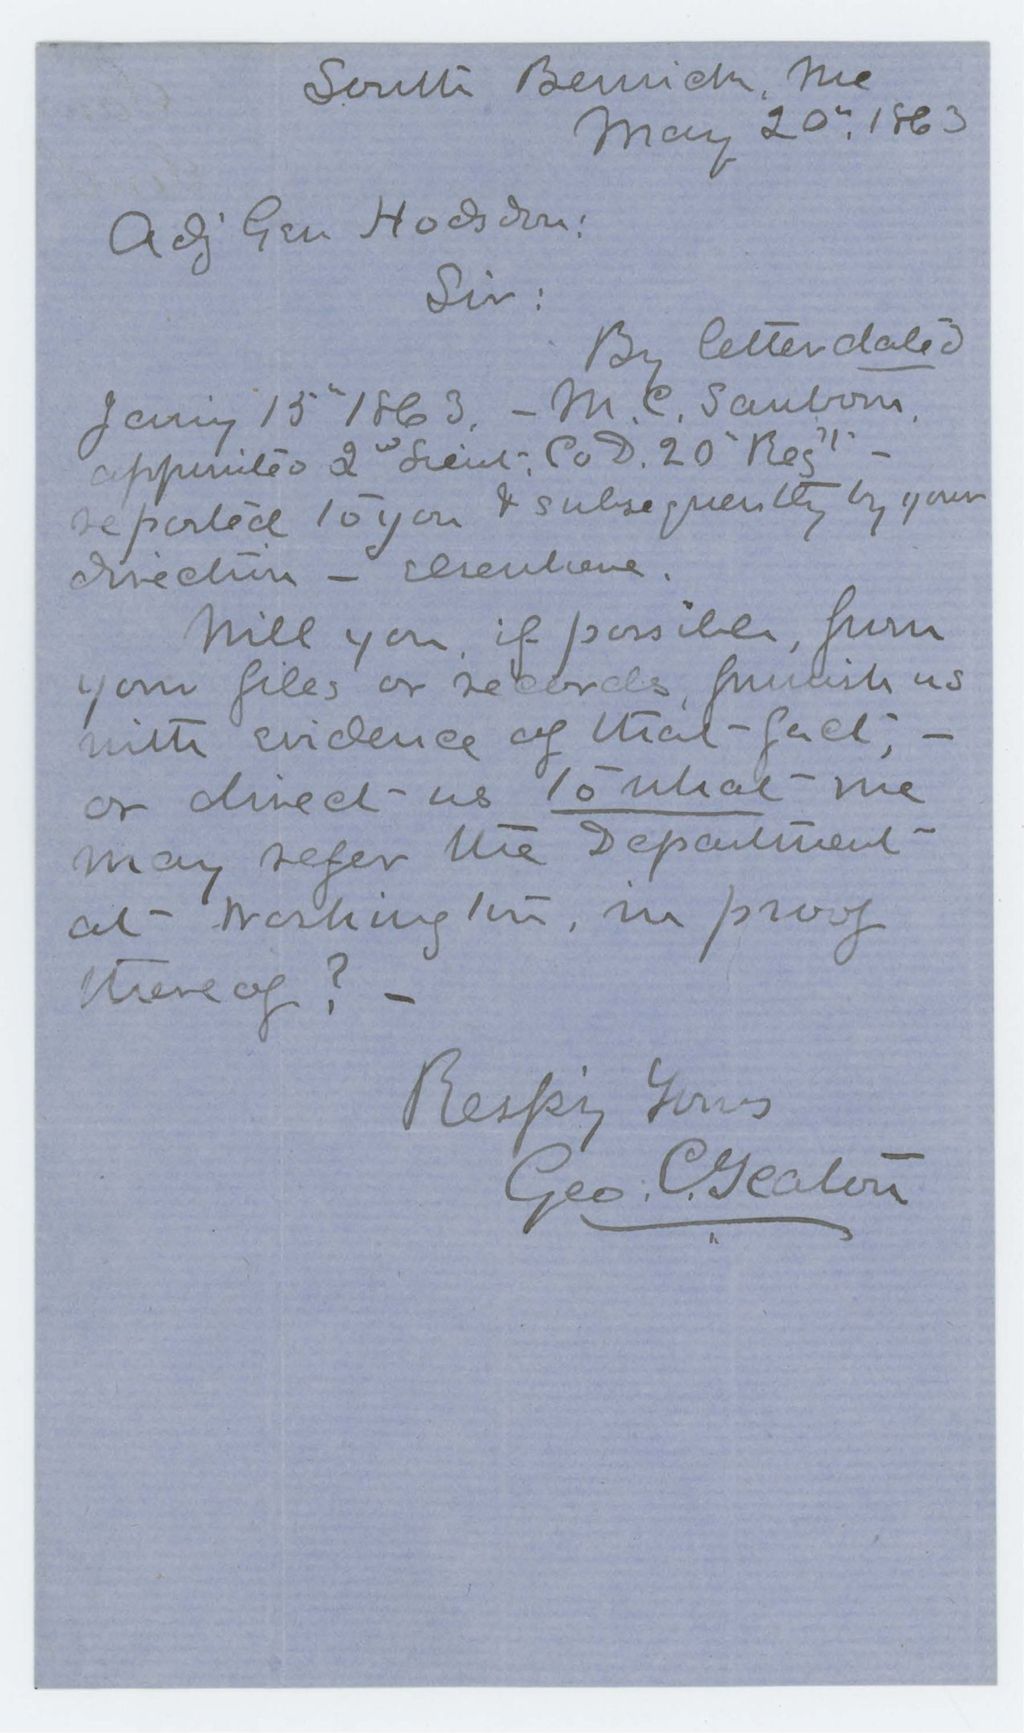 South Berwick, Me
May 20", 1863
Adj Gen Hodsdon:
Sir:
By letter dated
Jan'y 15" 1863, - M. C. Sanborn,
appointed 2nd Lieut. Co D. 20" Reg't -
reported to you & subsequently by your
direction - elsewhere.
Will you, if possible, from
your files or records, furnish us
with evidence of that fact; -
or direct us to what we
may refer the Department
at Washington, in proof
thereof? -
Resp'y Yours
Geo. C. Yeaton